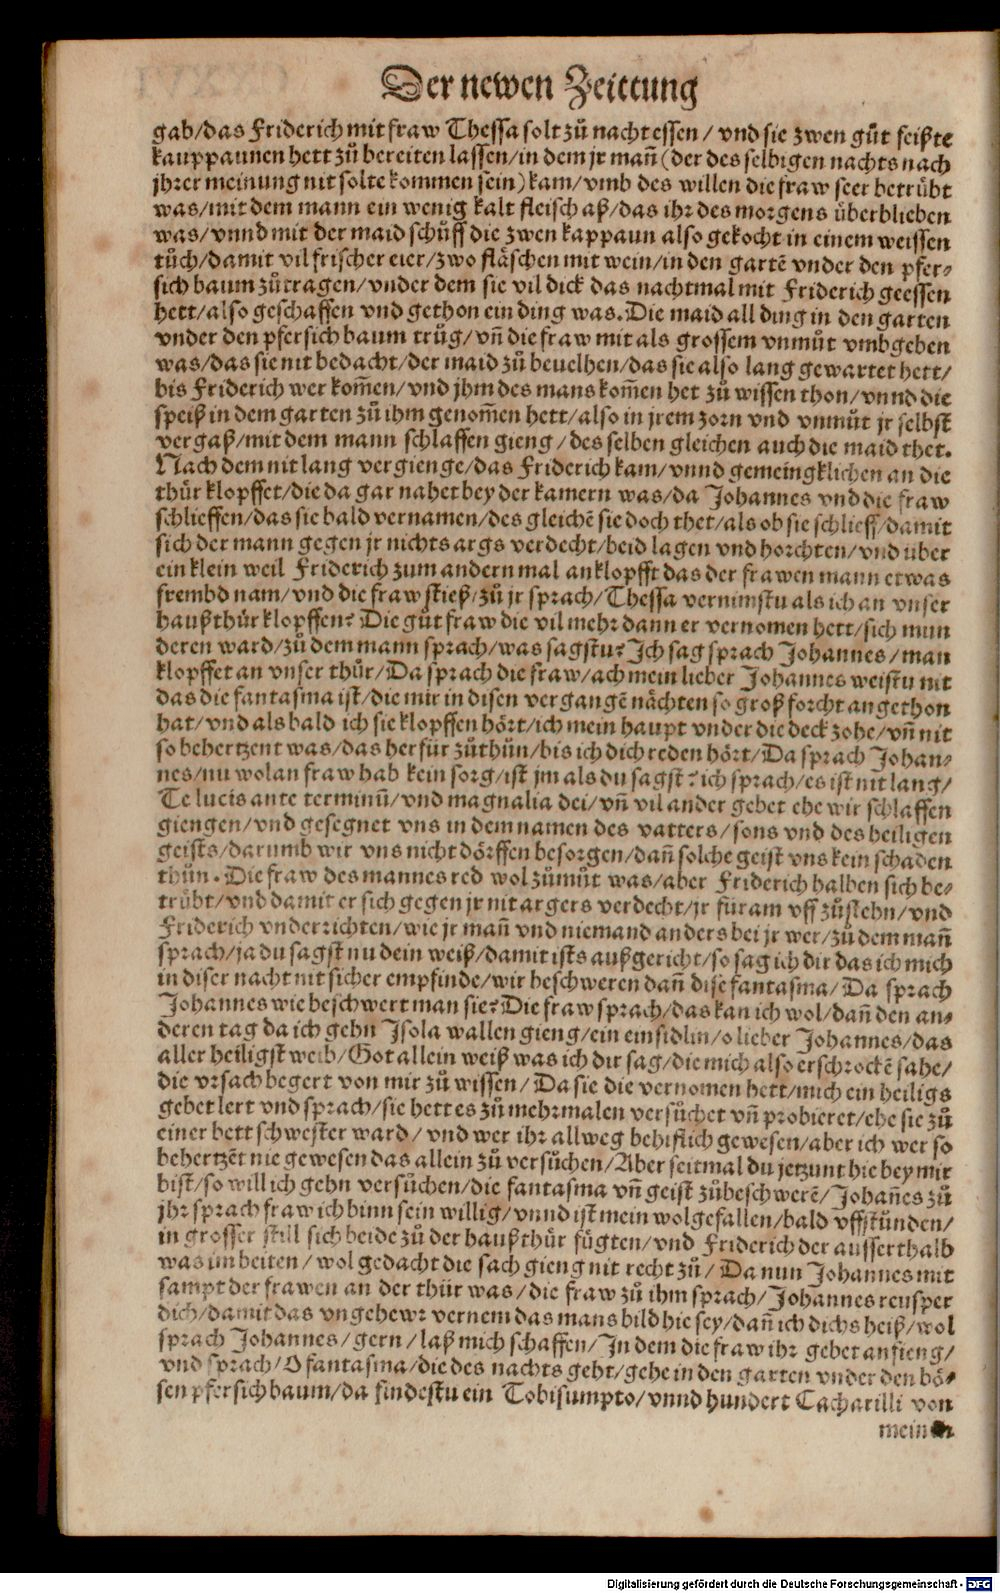 Der newen Zeittung
gab/das Friderich mit fraw Thessa solt zů nacht essen / vnd sie zwen gůt feißte
kauppaunen hett zů bereiten lassen/in dem jr mañ (der des selbigen nachts nach
jhrer meinung nit solte kommen sein) kam/vmb des willen die fraw seer betrůbt
was/mit dem mann ein wenig kalt fleisch aß/das ihr des morgens überblieben
was/vnnd mit der maid schůff die zwen kappaun also gekocht in einem weissen
tůch/damit vil frischer eier/zwo fläschen mit wein/in den gartẽ vnder den pfer-
sich baum zůtragen/vnder dem sie vil dick das nachtmal mit Friderich geessen
hett/also geschaffen vnd gethon ein ding was. Die maid all ding in den garten
vnder den pfersich baum trůg/vñ die fraw mit als grossem vnmůt vmbgeben
was/das sie nit bedacht/der maid zů beuelhen/das sie also lang gewartet hett/
bis Friderich wer kom̃en/vnd jhm des mans kom̃en het zů wissen thon/vnnd die
speiß in dem garten zů ihm genom̃en hett/also in jrem zorn vnd vnmůt jr selbst
vergaß/mit dem mann schlaffen gieng / des selben gleichen auch die maid thet.
Nach dem nit lang vergienge/das Friderich kam/vnnd gemeingklichen an die
thür klopffet/die da gar nahet bey der kamern was/da Johannes vnd die fraw
schlieffen/das sie bald vernamen/des gleichẽ sie doch thet/als ob sie schlieff/damit
sich der mann gegen jr nichts args verdecht/beid lagen vnd horchten/vnd über
ein klein weil Friderich zum andern mal anklopfft das der frawen mann etwas
frembd nam/vnd die fraw stieß/zů jr sprach/Thessa vernimstu als ich an vnser
haußthür klopffen? Die gůt fraw die vil mehr dann er vernomen hett/sich mun
deren ward/zů dem mann sprach/was sagstu? Ich sag sprach Johannes/man
klopffet an vnser thür/Da sprach die fraw/ach mein lieber Johannes weistu nit
das die fantasma ist/die mir in disen vergangẽ nächten so groß forcht angethon
hat/vnd als bald ich sie klopffen hört/ich mein haupt vnder die deck zohe/vñ nit
so behertzent was/das herfür zůthůn/bis ich dich reden hört/Da sprach Johan-
nes/nu wolan fraw hab kein sorg/ist jm als du sagst? ich sprach/es ist nit lang/
Te lucis ante terminũ/vnd magnalia dei/vñ vil ander gebet ehe wir schlaffen
giengen/vnd gesegnet vns in dem namen des vatters/sons vnd des heiligen
geists/darumb wir vns nicht dörffen besorgen/dañ solche geist vns kein schaden
thůn. Die fraw des mannes red wol zůmůt was/aber Friderich halben sich be-
trůbt/vnd damit er sich gegen jr nit argers verdecht/jr füram vff zůstehn/vnd
Friderich vnderrichten/wie jr mañ vnd niemand anders bei jr wer/zů dem mañ
sprach/ja du sagst nu dein weiß/damit ists außgericht/so sag ich dir das ich mich
in diser nacht nit sicher empfinde/wir beschweren dañ dise fantasma/Da sprach
Johannes wie beschwert man sie? Die fraw sprach/das kan ich wol/dañ den an-
deren tag da ich gehn Isola wallen gieng/ein einsidlin/o lieber Johannes/das
aller heiligst weib/Got allein weiß was ich dir sag/die mich also erschrockẽ sahe/
die vrsach begert von mir zů wissen/Da sie die vernomen hett/mich ein heiligs
gebet lert vnd sprach/sie hett es zů mehrmalen versůchet vñ probieret/ehe sie zů
einer bett schwester ward/vnd wer ihr allweg behiflich gewesen/aber ich wer so
behertzẽt nie gewesen das allein zů versůchen/Aber seitmal du jetzunt hie bey mir
bist/so will ich gehn versůchen/die fantasma vñ geist zůbeschwerẽ/Johañes zů
jhr sprach fraw ich binn sein willig/vnnd ist mein wolgefallen/bald vffstůnden/
in grosser still sich beide zů der haußthür fůgten/vnd Friderich der ausserthalb
was im beiten / wol gedacht die sach gieng nit recht zů/Da nun Johannes mit
sampt der frawen an der thür was/die fraw zů ihm sprach/Johannes reusper
dich/damit das vngehewr vernem das mans bild hie sey/dañ ich dichs heiß/wol
sprach Johannes/gern/laß mich schaffen/In dem die fraw ihr gebet anfieng/
vnd sprach/O fantasma/die des nachts geht/gehe in den garten vnder den bö-
sen pfersichbaum/da findestu ein Tobisumpto/vnnd hundert Cacharilli von
Digitalisierung gefördert durch die Deutsche Forschungsgemeinschaft - DFG